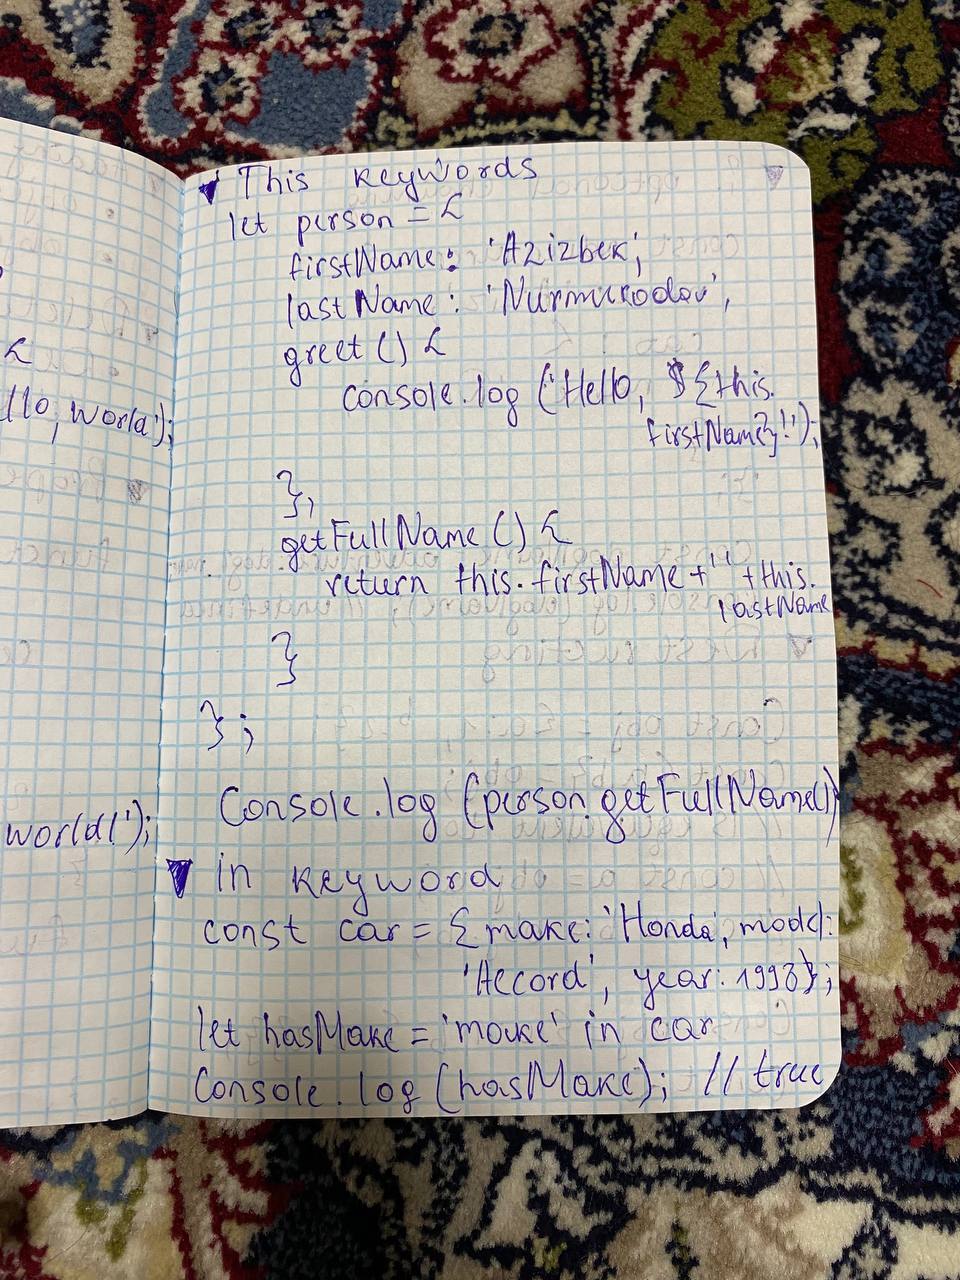 {
llo, world');
world!');
▼ This keywords
let person = {
firstName: 'Azizbek',
lastName: 'Nurmurodov',
greet () {
console.log ('Hello, ${this.
firstName}!');
},
getFullName () {
return this.firstName + ' ' + this.
lastName
}
};
Console.log (person.getFullName())
▼ in keyword
const car = {make: 'Honda', model:
'Accord', year: 1998};
let hasMake = 'make' in car
Console.log (hasMake); // true